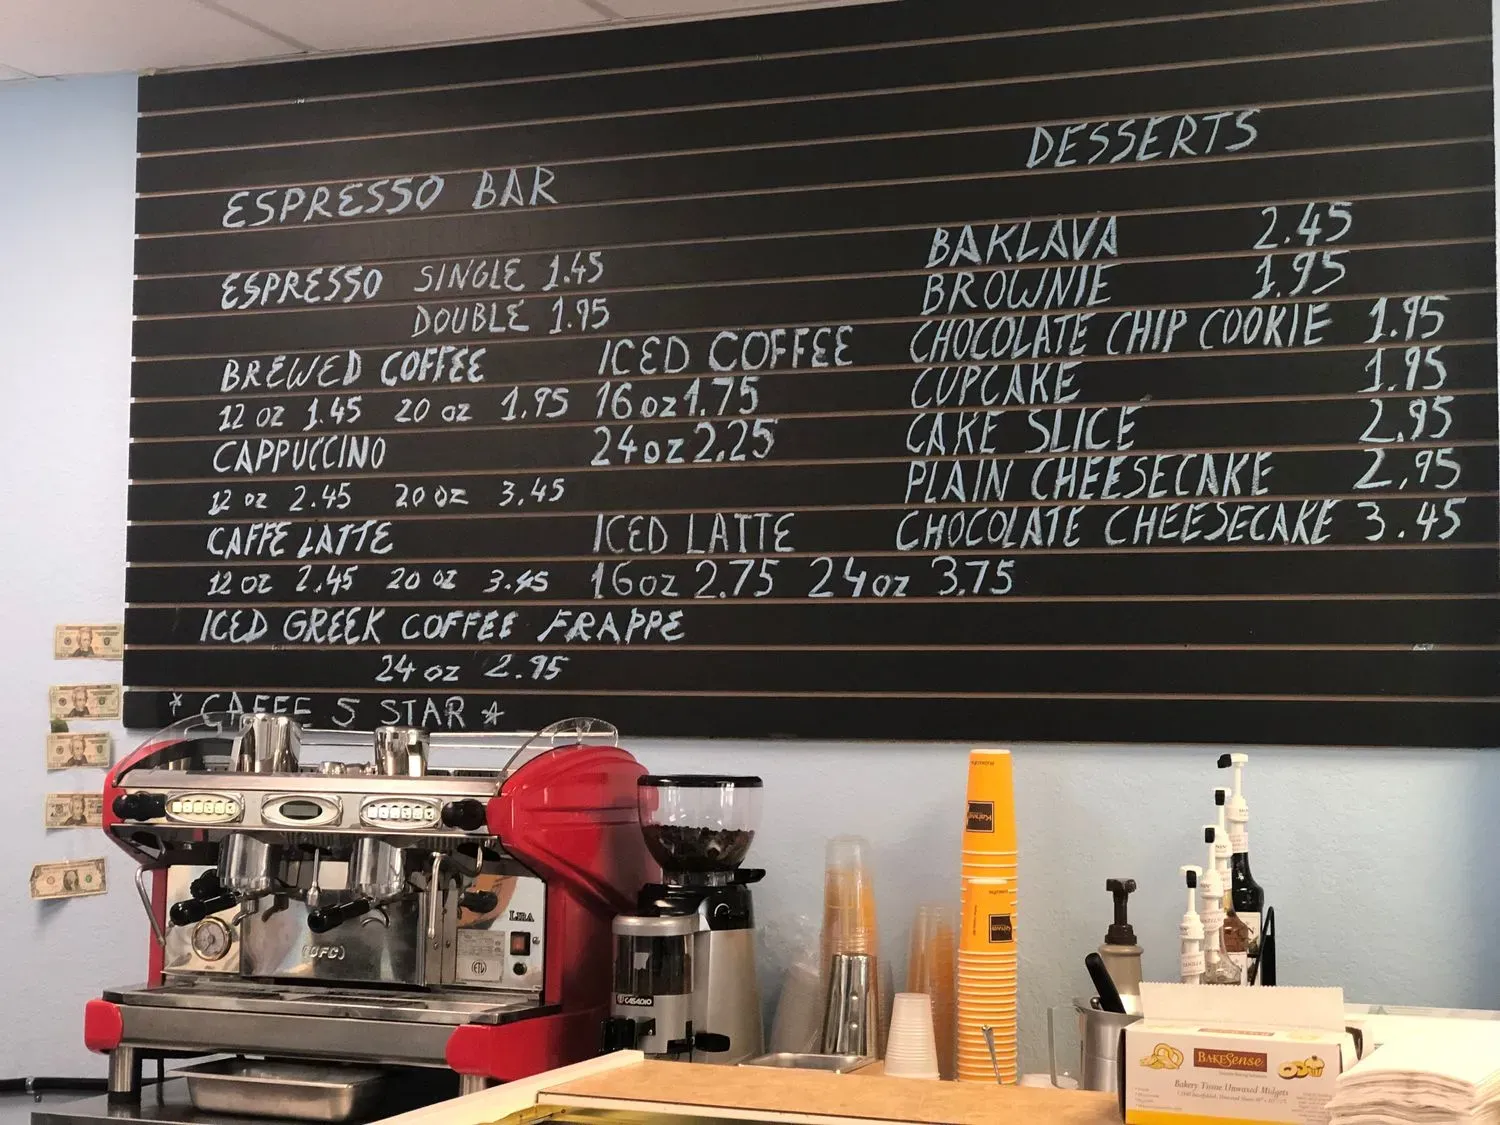 ESPRESSO BAR
ESPRESSO SINGLE 1.45
DOUBLE 1.95
BREWED COFFEE
12 oz 1.45 20 oz 1.95
CAPPUCCINO
12 oz 2.45 20 oz 3.45
CAFFE LATTE
12 oz 2.45 20 oz 3.45
ICED COFFEE
16 oz 1.75
24 oz 2.25
ICED LATTE
16 oz 2.75 24 oz 3.75
ICED GREEK COFFEE FRAPPE
24 oz 2.95
* CAFFE 5 STAR *
DESSERTS
BAKLAVA 2.45
BROWNIE 1.95
CHOCOLATE CHIP COOKIE 1.95
CUPCAKE 1.95
CAKE SLICE 2.95
PLAIN CHEESECAKE 2.95
CHOCOLATE CHEESECAKE 3.45
LIRA
BFC
CASADIO
BAKESENSE
Bakery Tissue Unwaxed Midgets